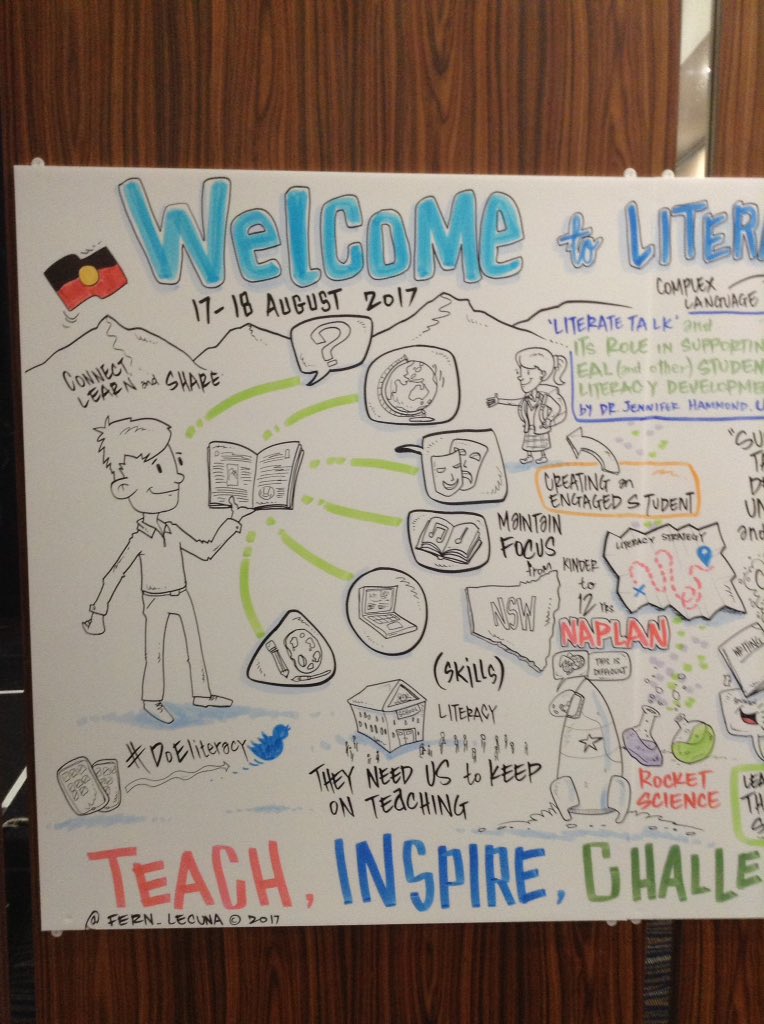 WELCOME to LITERA
17-18 AUGUST 2017
CONNECT
LEARN and SHARE
?
COMPLEX
LANGUAGE
'LITERATE TALK' and
ITS ROLE IN SUPPORTIN
EAL (and other) STUDEN
LITERACY DEVELOPME
by DR JENNIFER HAMMOND, U
CREATING an
ENGAGED STUDENT
MAINTAIN
FOCUS
from
KINDER
to
12
NSW
LITERACY STRATEGY
x
NAPLAN
THIS IS
DIFFICULT
"SU
TA
UN
and
WRITING
(SKILLS)
LITERACY
SCHOOL
THEY NEED US to KEEP
ON TEACHING
#DoELiteracy
ROCKET
SCIENCE
LEA
TH
S
TEACH, INSPIRE, CHALLE
@FERN_LECUNA © 2017